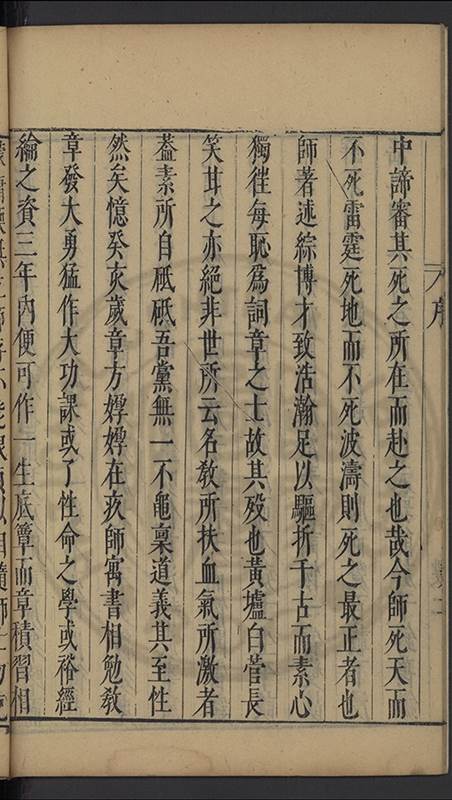 中諦審其死之所在而赴之也哉今師死天而
不死雷霆死地而不死波濤則死之最正者也
師著述綜博才致浩瀚足以驅折千古而素心
獨往每恥為詞章之士故其歿也黃壚白菅長
笑耳之亦絕非世所云名敎所扶血氣所激者
葢素所自砥砥吾黨無一不龜稟道義其至性
然矣憶癸亥歲章方㷀㷀在疚師寓書相勉敎
章發大勇猛作大功課或了性命之學或裕經
綸之資三年內便可作一生底簟而章積習相